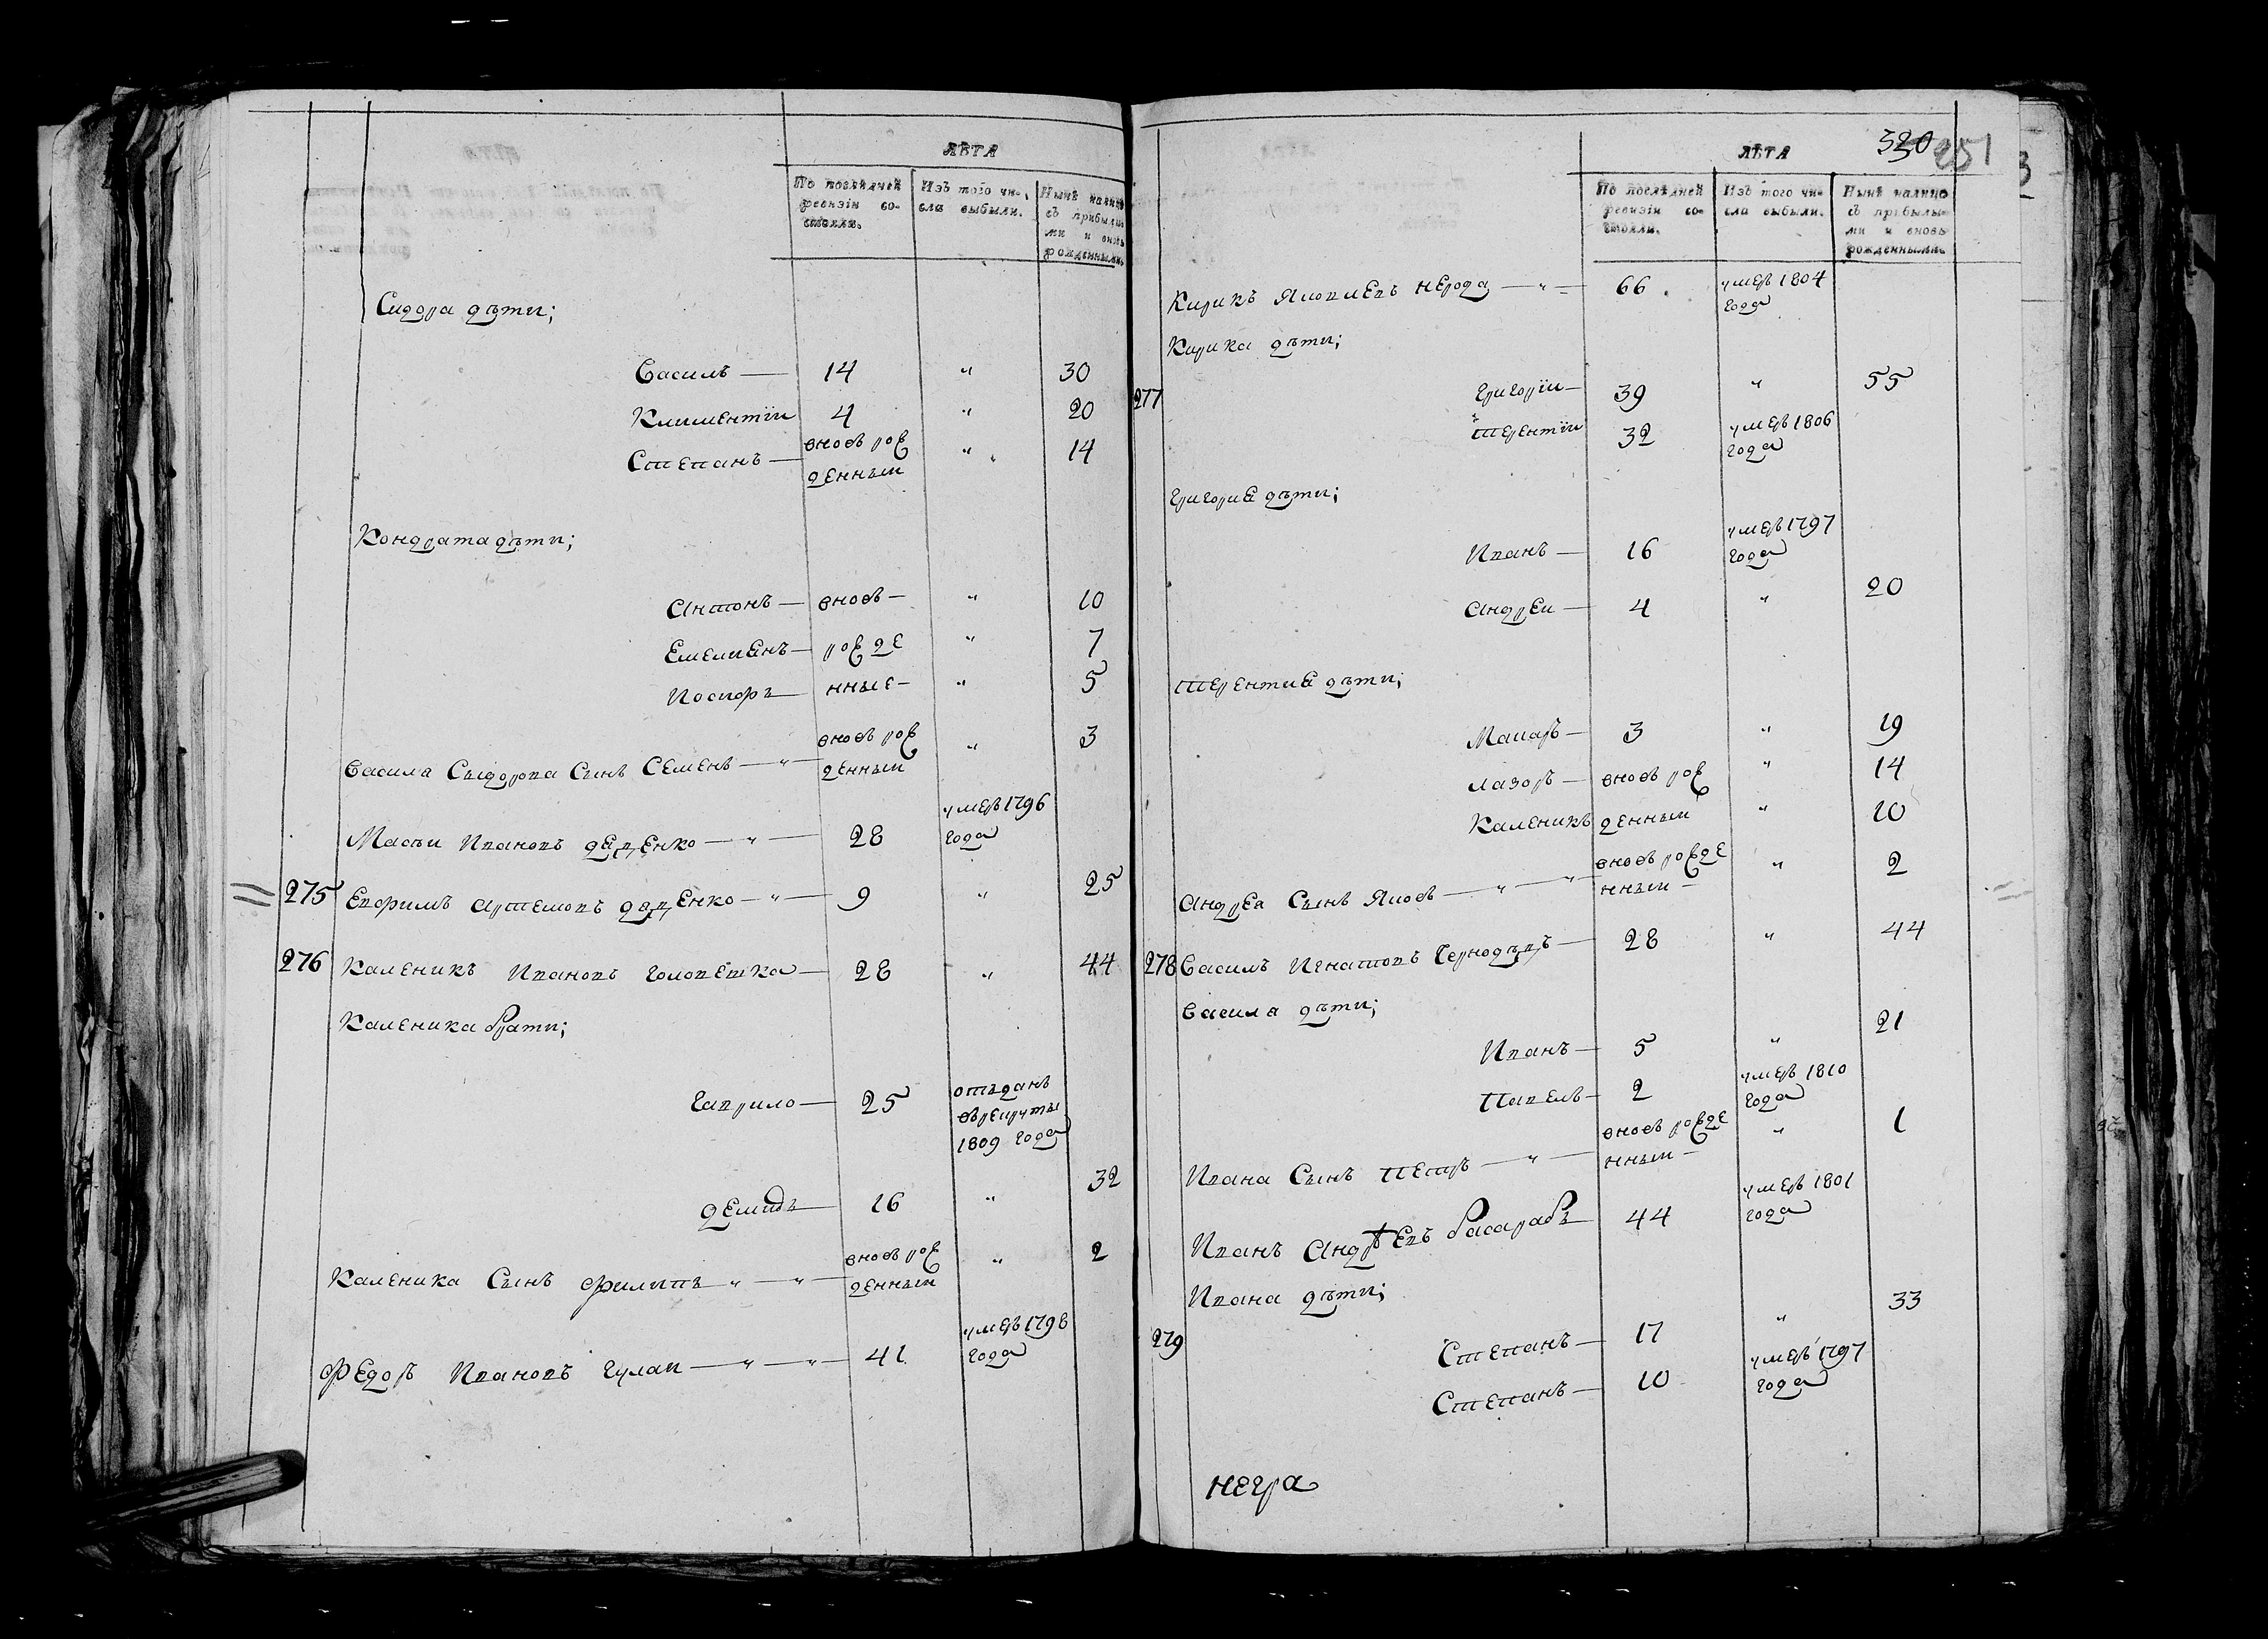 ЛѢТА
По послѣдней ревизіи состояли.
Изъ того числа выбыли.
Нынѣ налицо съ прибылыми и вновь рожденными.
Сидора дѣти;
Василь — 14 " 30
Климентіи 4 " 20
Степанъ — вновь рож денныи " 14
Кондрата дѣти;
Антонъ — вновь — " 10
Емелианъ — рожде " 7
Иосифъ — нные — " 5
Василя Сыдорова Сынъ Семенъ — " — вновь рож денныи " 3
Мафеи Ивановъ — " — 28 умеръ 1796 года
275 Евфимъ Артемовъ — " — 9 " 25
276 Каленикъ Ивановъ Головешка — 28 " 44
Каленика брати;
Гаврило — 25 отъданъ врекруты 1809 года
Демидъ — 16 " 32
Каленика Сынъ Филипъ " — " — вновь рож денныи " 2
Федоръ Ивановъ Гулаи — " — " — 41 умеръ 1798 года
ЛѢТА
330 251
По послѣдней ревизіи состояли.
Изъ того числа выбыли.
Нынѣ налицо съ прибылыми и вновь рожденными.
Кирикъ Яковлевъ Нерода — " — 66 умеръ 1804 года
Кирика дѣти;
277 Григоріи — 39 " 55
Терентіи 32 умеръ 1806 года
Григориа дѣти;
Иванъ — 16 умеръ 1797 года
Андреи — 4 " 20
Терентиа дѣти;
Макаръ — 3 " 19
Лазоръ — вновь рож " 14
Каленикъ денныи " 10
Андреа Сынъ Яковъ — " — " вновь рожде нныи — " 2
278 Василь Игнатовъ — 28 " 44
Василя дѣти;
Иванъ — 5 " 21
Павелъ — 2 умеръ 1810 года
Ивана Сынъ Петръ — " — вновь рожде нныи — " 1
Иванъ Андрѣевъ Басарабъ — 44 умеръ 1801 года
Ивана дѣти;
279 Степанъ — 17 " 33
Степанъ — 10 умеръ 1797 года
негра